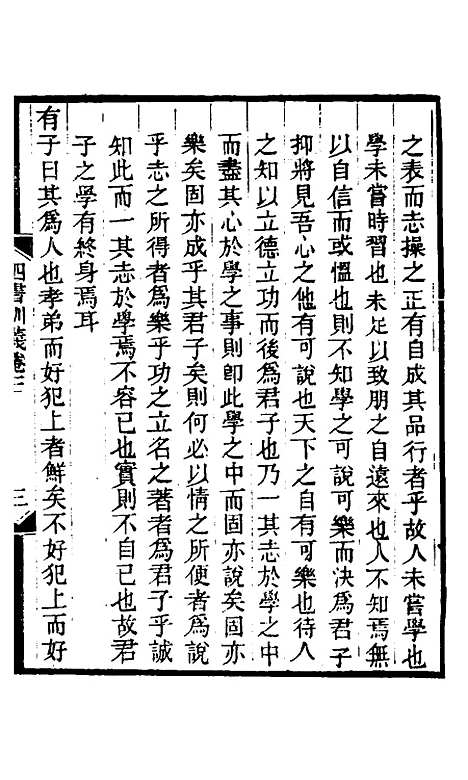 之表而志操之正有自成其品行者乎故人未嘗學也
學未嘗時習也未足以致朋之自遠來也人不知焉無
以自信而或慍也則不知學之可說可樂而決爲君子
抑將見吾心之他有可說也天下之自有可樂也待人
之知以立德立功而後爲君子也乃一其志於學之中
而盡其心於學之事則卽此學之中而固亦說矣固亦
樂矣固亦成乎其君子矣則何必以情之所便者爲說
乎志之所得者爲樂乎功之立名之著者爲君子乎誠
知此而一其志於學焉不容已也實則不自已也故君
子之學有終身焉耳
有子曰其爲人也孝弟而好犯上者鮮矣不好犯上而好
四書訓義卷五
三